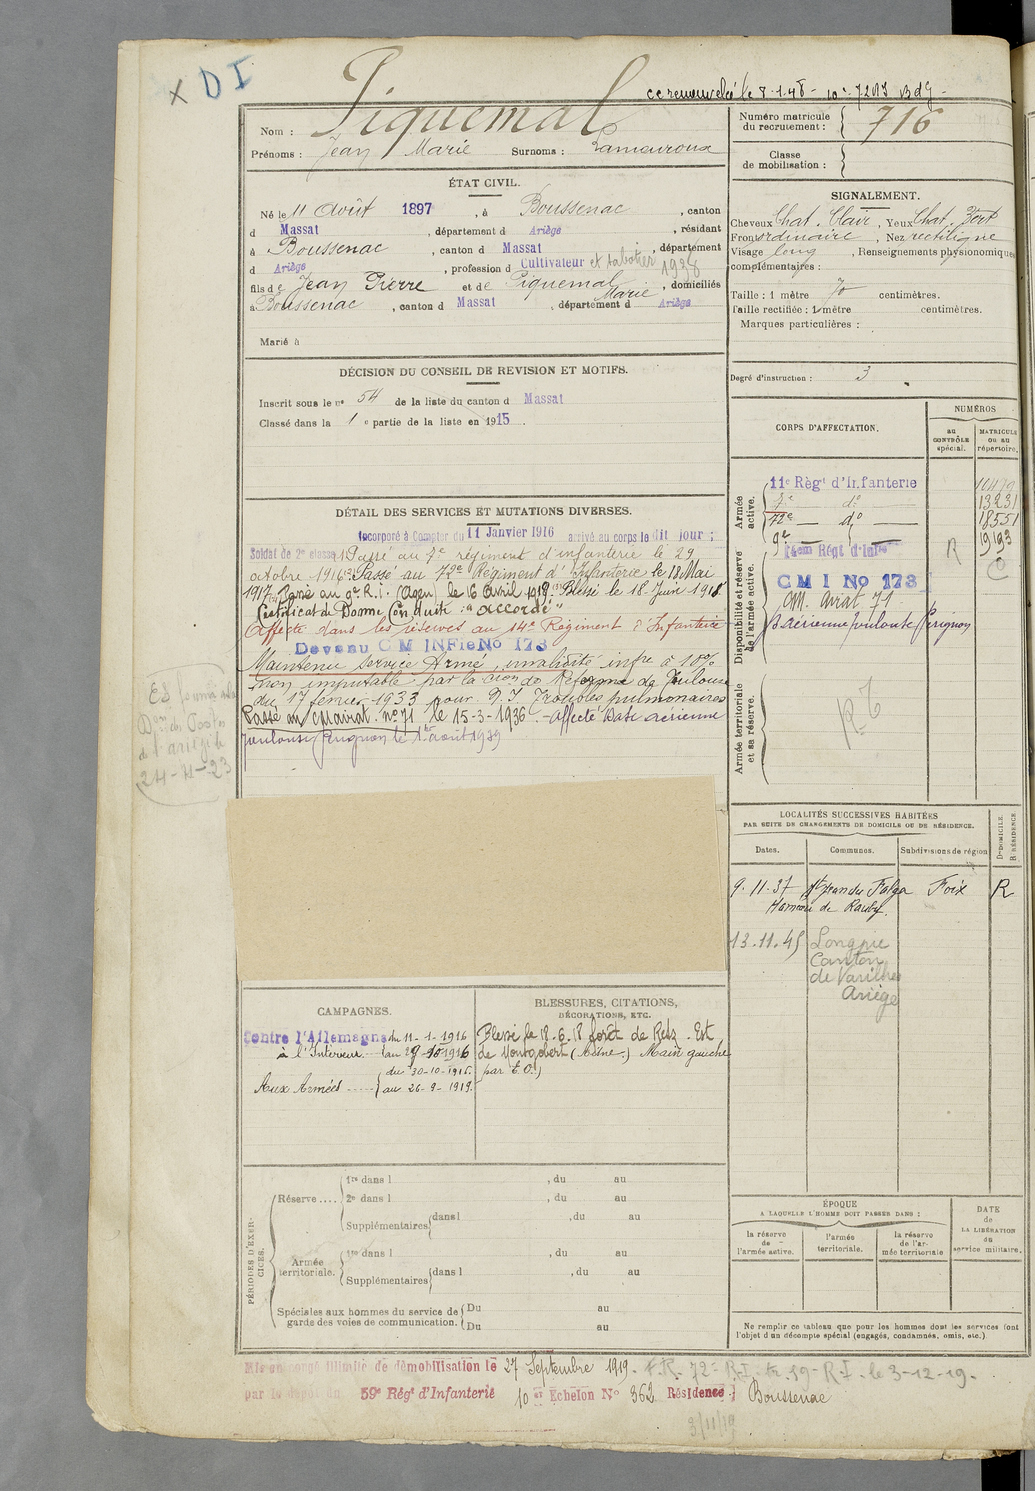 x D I
Piquemal
Nom :
Prénoms : Jean Marie Surnoms : Lamouroux
ÉTAT CIVIL.
Né le 11 Août 1897, à Boussenac, canton
d Massat, département d Ariège, résidant
à Boussenac, canton d Massat, département
d Ariège, profession d Cultivateur et sabotier 1938
fils de Jean Pierre et de Piquemal Marie, domiciliés
à Boussenac, canton d Massat, département d Ariège
Marié à
DÉCISION DU CONSEIL DE REVISION ET MOTIFS.
Inscrit sous le no 54 de la liste du canton d Massat
Classé dans la 1 e partie de la liste en 1915.
DÉTAIL DES SERVICES ET MUTATIONS DIVERSES.
Incorporé à Compter du 11 Janvier 1916 arrivé au corps le dit jour ;
Soldat de 2e classe. Passé au 7e régiment d'infanterie le 29
octobre 1916. Passé au 72e Régiment d'Infanterie le 18 Mai
1917. Passé au 9e R.i. (Agen) le 16 Avril 1918. Blessé le 18 Juin 1918
Certificat de Bonne Conduite : "accordé"
Affecté dans les réserves au 14e Régiment d'Infanterie
Devenu C M INFie No 173
Maintenu Service Armé, invalidité infre à 10%
non imputable par la cion de Réforme de Toulouse
du 17 février 1933 pour. D.I Troubles pulmonaires
Passé au cm avrat. no 71 le 15-3-1936. - affecté Base aérienne
Toulouse Pérignon le 1er août 1939
24-4-23
CAMPAGNES.
Contre l'Allemagne du 11-1-1916
à l'Intérieur. au 29-10-1916
du 30-10-1916.
Aux Armées au 26-9-1919.
BLESSURES, CITATIONS,
DÉCORATIONS, ETC.
Blessé le 18.6.18 forêt de Retz. Est
de Montgobert (Aisne.) Main gauche
par E.O.)
PÉRIODES D'EXERCICES.
Réserve ....
1re dans l , du au
2e dans l , du au
Supplémentaires dans l , du au
Armée territoriale.
1re dans l , du au
Supplémentaires dans l , du au
Spéciales aux hommes du service de garde des voies de communication.
Du au
Du au
Mis en congé illimité de démobilisation le 27 Septembre 1919. F.R. 72e R.I. 59e R.I. le 3-12-19.
par le dépôt du 59e Régt d'Infanterie 10 er Echelon No 362 Résidence : Boussenac
3/11/19
cc renouvelé le 8-1-48
Numéro matricule
du recrutement : 716
Classe
de mobilisation :
SIGNALEMENT.
Cheveux Chat. Clair, Yeux Chat. Vert
Front ordinaire, Nez rectiligne
Visage long, Renseignements physionomiques
complémentaires :
Taille : 1 mètre 70 centimètres.
Taille rectifiée : 1 mètre centimètres.
Marques particulières :
Degré d'instruction : 3
CORPS D'AFFECTATION.
NUMÉROS
AU CONTRÔLE spécial.
MATRICULE OU AU répertoire.
Armée active.
11e Régt d'Infanterie
7e do 13231
72e do 18551
9e 19193
Disponibilité et réserve de l'armée active.
14em Régt d'Infie R
C M I No 173
CM. avrat 71
B aérienne Toulouse Pérignon
Armée territoriale et sa réserve.
LOCALITÉS SUCCESSIVES HABITÉES
PAR SUITE DE CHANGEMENTS DE DOMICILE OU DE RÉSIDENCE.
Dates. Communes. Subdivisions de région D DOMICILE. R RÉSIDENCE
9.11.37 St Jean du Falga Foix R
Hameau de
13.11.45 Longpie
Canton
de Varilhes
Ariège
ÉPOQUE
A LAQUELLE L'HOMME DOIT PASSER DANS :
la réserve de l'armée active.
l'armée territoriale.
la réserve de l'armée territoriale
DATE de LA LIBÉRATION du service militaire.
Ne remplir ce tableau que pour les hommes dont les services font
l'objet d'un décompte spécial (engagés, condamnés, omis, etc.)